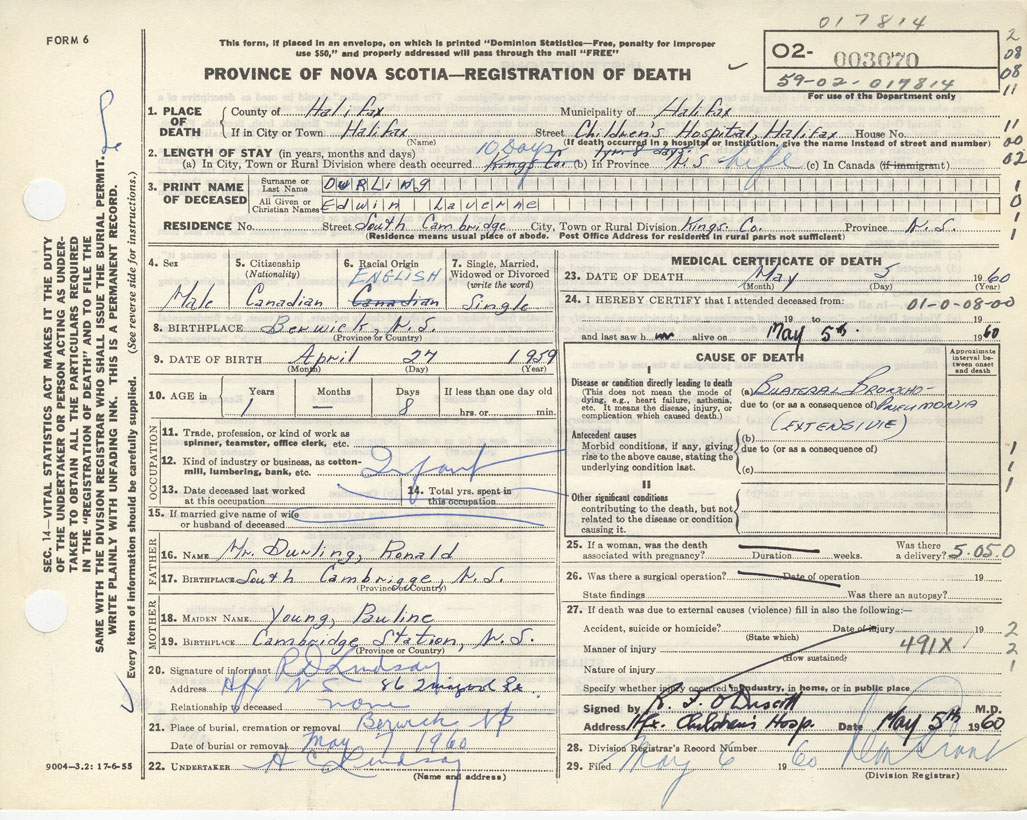 017814
FORM 6
This form, if placed in an envelope, on which is printed "Dominion Statistics—Free, penalty for improper
use $50," and properly addressed will pass through the mail "FREE"
PROVINCE OF NOVA SCOTIA—REGISTRATION OF DEATH
02- 003070
59-02-017814
For use of the Department only
2
08
08
11
11
00
02
1
0
1
1. PLACE OF DEATH
County of Halifax Municipality of Halifax
If in City or Town Halifax Street Children's Hospital, Halifax House No.
(Name) (If death occurred in a hospital or institution, give the name instead of street and number)
2. LENGTH OF STAY (in years, months and days) 10 Days 1yr-8 days
(a) In City, Town or Rural Division where death occurred Kings Co. (b) In Province N.S life (c) In Canada (if immigrant)
3. PRINT NAME OF DECEASED
Surname or Last Name DURLING
All Given or Christian Names Edwin Laverne
RESIDENCE No. Street South Cambridge City, Town or Rural Division Kings Co. Province N.S.
(Residence means usual place of abode. Post Office Address for residents in rural parts not sufficient)
4. Sex
Male
5. Citizenship
(Nationality)
Canadian
6. Racial Origin
ENGLISH
Canadian
7. Single, Married,
Widowed or Divorced
(write the word)
Single
8. BIRTHPLACE Berwick, N.S.
(Province or Country)
9. DATE OF BIRTH April 27 1959
(Month) (Day) (Year)
10. AGE in
Years Months Days If less than one day
1 — 8 hrs. or min.
OCCUPATION
11. Trade, profession, or kind of work as
spinner, teamster, office clerk, etc.
12. Kind of industry or business, as cotton-
mill, lumbering, bank, etc. Infant
13. Date deceased last worked
at this occupation
14. Total yrs. spent in
this occupation
15. If married give name of wife
or husband of deceased
FATHER
16. NAME Mr. Durling, Ronald
17. BIRTHPLACE South Cambrigge, N.S.
(Province or Country)
MOTHER
18. MAIDEN NAME Young, Pauline
19. BIRTHPLACE Cambridge Station, N.S.
(Province or Country)
20. Signature of informant R D Lindsay
Address Hfx NS 86
Relationship to deceased none
21. Place of burial, cremation or removal Berwick NS
Date of burial or removal May 7 1960
22. UNDERTAKER A C Lindsay
(Name and address)
MEDICAL CERTIFICATE OF DEATH
23. DATE OF DEATH May 5 1960
(Month) (Day) (Year)
24. I HEREBY CERTIFY that I attended deceased from: 01-0-08-00
19 to 19
and last saw h im alive on May 5th. 1960
CAUSE OF DEATH
Approximate interval between onset and death
I
Disease or condition directly leading to death
(This does not mean the mode of
dying, e.g., heart failure, asthenia,
etc. It means the disease, injury, or
complication which caused death.)
(a) BILATERAL BRONCHO-
due to (or as a consequence of) PNEUMONIA
(EXTENSIVE)
Antecedent causes
Morbid conditions, if any, giving
rise to the above cause, stating the
underlying condition last.
(b)
due to (or as a consequence of)
(c)
1
1
1
II
Other significant conditions
contributing to the death, but not
related to the disease or condition
causing it.
25. If a woman, was the death
associated with pregnancy? Duration weeks. Was there a delivery? 5.05.0
26. Was there a surgical operation? Date of operation 19
State findings Was there an autopsy?
27. If death was due to external causes (violence) fill in also the following:—
Accident, suicide or homicide? Date of injury 19 2
(State which)
Manner of injury 491X 2
(How sustained)
Nature of injury 1
Specify whether injury occurred in industry, in home, or in public place
Signed by R. J. O'Driscoll M.D.
Address Hfx. Children's Hosp. Date May 5th 1960
28. Division Registrar's Record Number
29. Filed May 6 1960
(Division Registrar)
SEC. 14—VITAL STATISTICS ACT MAKES IT THE DUTY
OF THE UNDERTAKER OR PERSON ACTING AS UNDER-
TAKER TO OBTAIN ALL THE PARTICULARS REQUIRED
IN THE "REGISTRATION OF DEATH" AND TO FILE THE
SAME WITH THE DIVISION REGISTRAR WHO SHALL ISSUE THE BURIAL PERMIT.
WRITE PLAINLY WITH UNFADING INK. THIS IS A PERMANENT RECORD.
Every item of information should be carefully supplied. (See reverse side for instructions.)
9004-3.2: 17-6-55